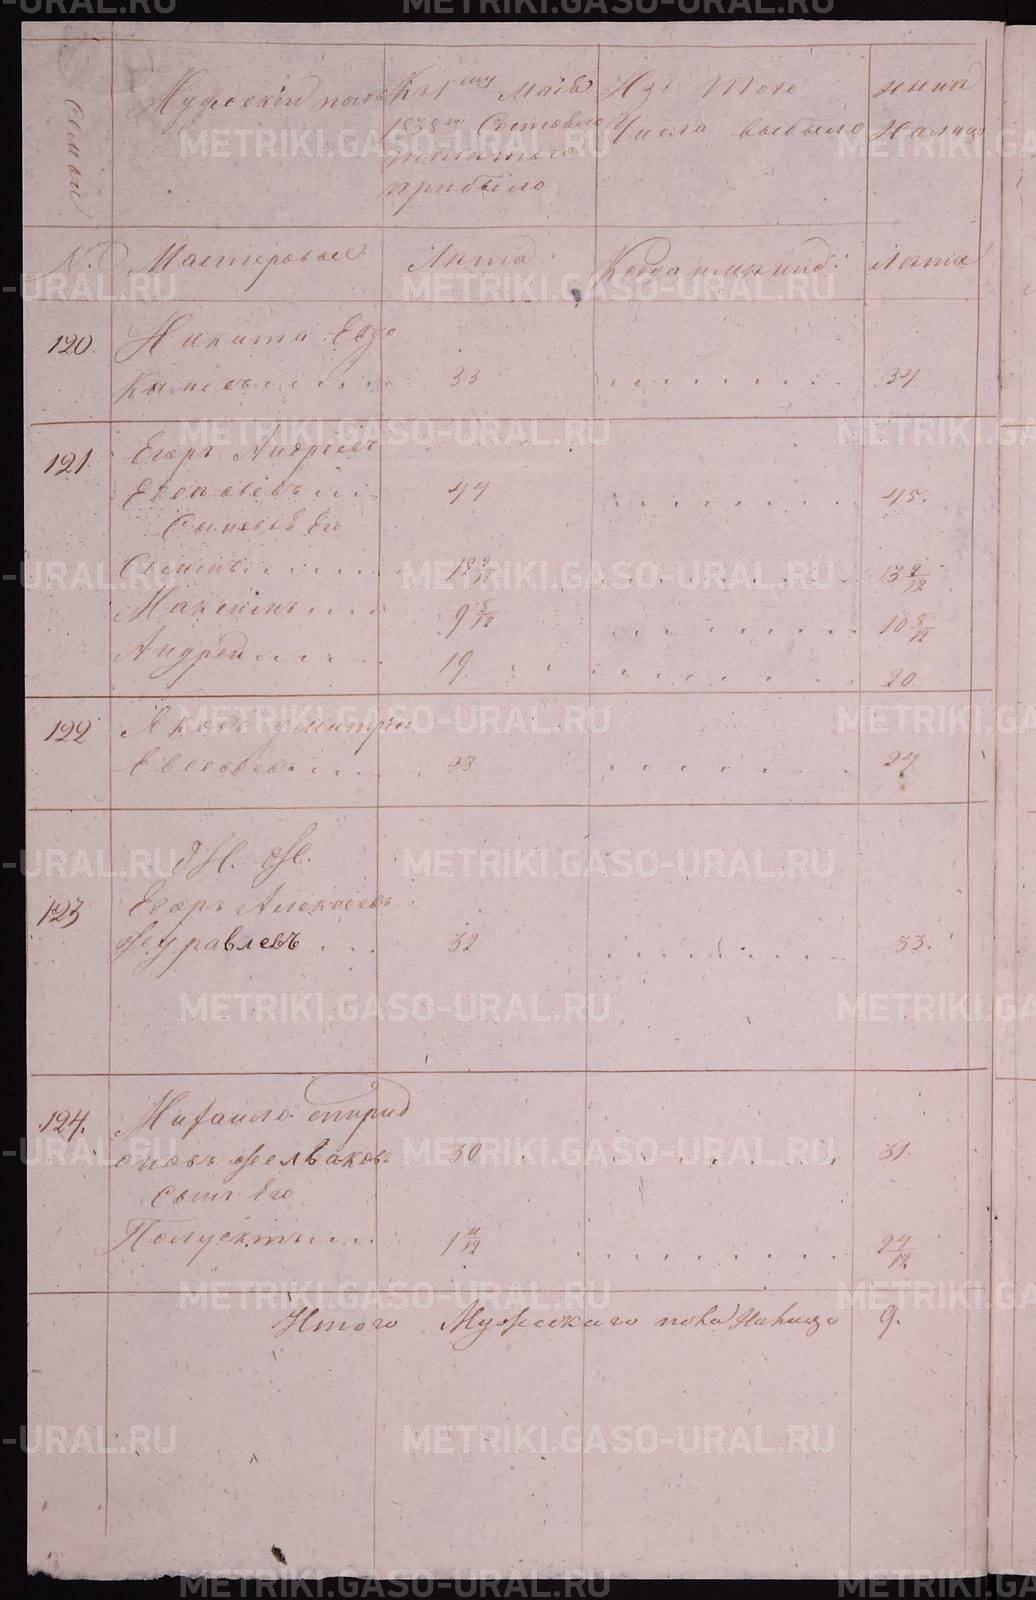 Семьи
Мужескій полъ
Къ 1му Маія
1838го Состояло
прибыло
Изъ Того
Числа выбыло
нынѣ
Налицо
№
Мастеровые
Лѣта
Когда именно
Лѣта
120. Никита Евдо
кимовъ 33 34
121. Егоръ Андреевъ
Евсѣевъ 44 45.
Сыновья Его
Семенъ 12 9/12 13 9/12
Максимъ 9 8/12 10 8/12
Андрей 19 20
122 Яковъ Дмитріи
Евсеевъ 23 24
Н. Ж.
123 Егоръ Алексеевъ
Журавлевъ 32 33.
124. Михаило Спирид
оновъ Желваковъ 30 31.
Сынъ Его
Полуектъ 1 11/12
Итого Мужескаго пола Налицо 9.
METRIKI.GASO-URAL.RU